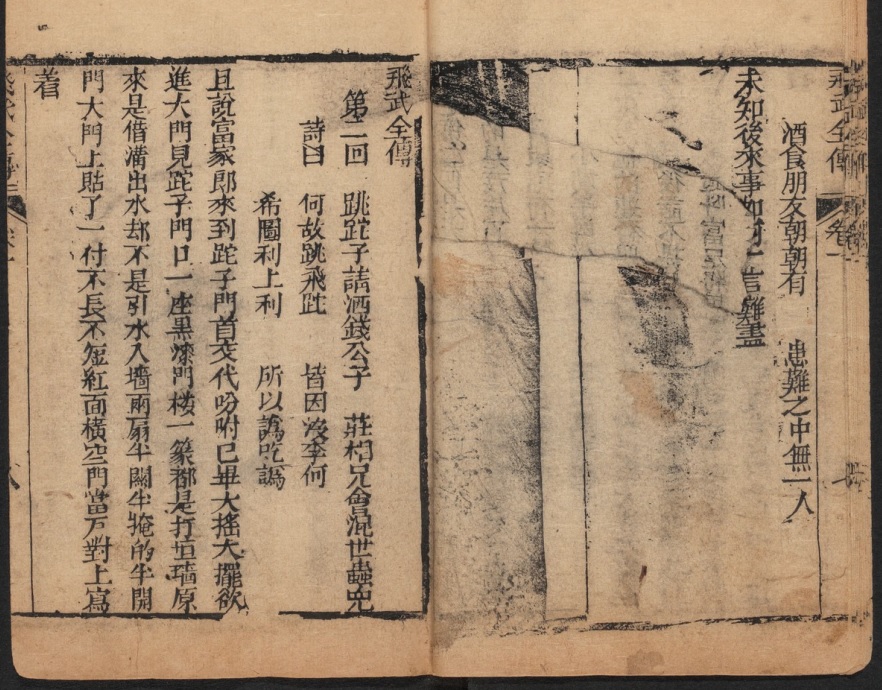 飛武全傳
卷一
酒食朋友朝朝有 患難之中無一人
未知後來事如何一言難盡
飛武全傳
第二回 跳跎子請酒錢公子 莊相兄會混世蟲兒
詩曰 何故跳飛跎 皆因沒奈何
希圖利上利 所以譌吃譌
且說富家郎來到跎子門首交代吩咐已畢大搖大擺欲
進大門見跎子門口一座黑漆門楼一篆都是打垣墻原
來是借溝出水却不是引水入墻兩扇半關半掩的半開
門大門上貼了一付不長不短紅面橫空門當戶對上寫
着
八